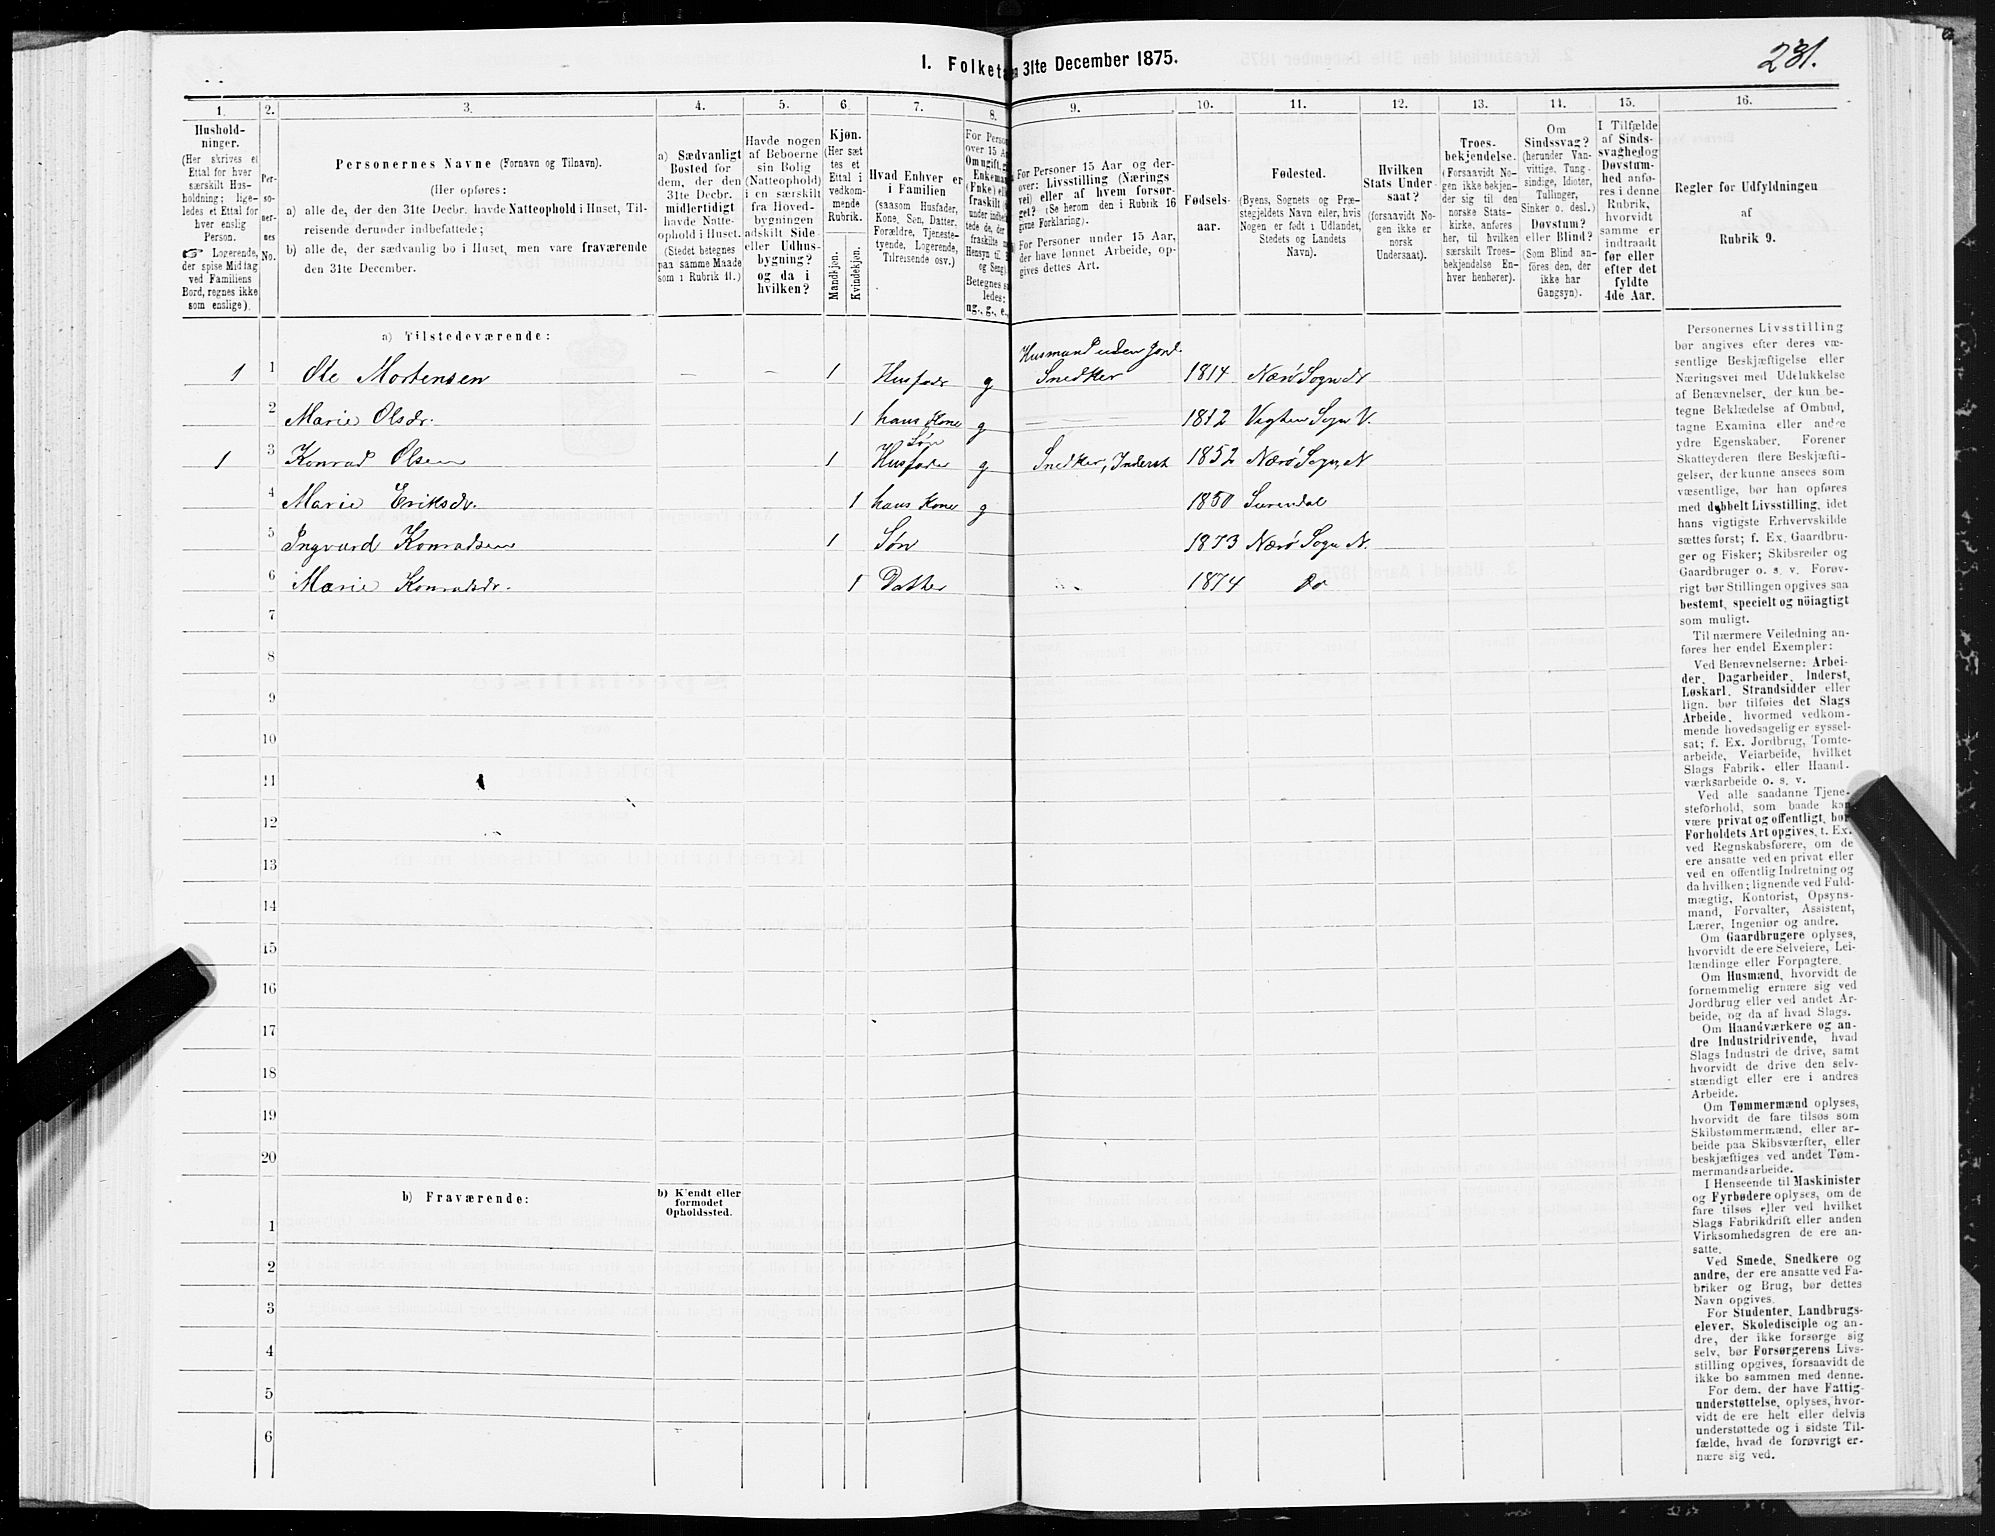 1. Folketa en 31te December 1875.
231.
1.
2.
3.
4.
5.
6.
7.
8.
9.
10.
11.
12.
13.
14.
15.
16.
Hushold-
ninger.
(Her skrives et
Ettal for hver
særskilt Hus-
holdning; lige-
ledes et Ettal for
hver enslig
Person.
☞ Logerende,
der spise Middag
ved Familiens
Bord, regnes ikke
som enslige).
Per-
so-
ner-
nes
No.
Personernes Navne (Fornavn og Tilnavn).
(Her opføres:
a) alle de, der den 31te Decbr. havde Natteophold i Huset, Til-
reisende derunder indbefattede;
b) alle de, der sædvanlig bo i Huset, men vare fraværende
den 31te December.
a) Sædvanligt
Bosted for
dem, der den
31te Decbr.
midlertidigt
havde Natte-
ophold i Huset.
(Stedet betegnes
paa samme Maade
som i Rubrik 11.)
Havde nogen
af Beboerne
sin Bolig
(Natteophold)
i en særskilt
fra Hoved-
bygningen
adskilt Side-
eller Udhus-
bygning?
og da i
hvilken?
Kjøn.
(Her sæt
tes et
Ettal i
vedkom-
mende
Rubrik.
Mandkjøn.
Kvindekjøn.
Hvad Enhver er
i Familien
(saasom Husfader,
Kone, Søn, Datter,
Forældre, Tjeneste-
tyende, Logerende,
Tilreisende osv.)
For Perso
over 15 A
Om ugift, g
Enkeman
(Enke) ell
fraskilt (
under indbef
tede de, de
fraskilte
Hensyn til
og Seng)
Betegnes s
ledes:
ug., g., e.,
For Personer 15 Aar og der-
over: Livsstilling (Nærings
vei) eller af hvem forsør-
get? (Se herom den i Rubrik 16
givne Forklaring).
For Personer under 15 Aar,
der have lønnet Arbeide, op-
gives dettes Art.
Fødsels-
aar.
Fødested.
(Byens, Sognets og Præ-
stegjeldets Navn eller, hvis
Nogen er født i Udlandet,
Stedets og Landets
Navn).
Hvilken
Stats Under-
saat?
(forsaavidt No-
gen ikke er
norsk
Undersaat).
Troes-
bekjendelse.
(Forsaavidt No-
gen ikke bekjen-
der sig til den
norske Stats-
kirke, anføres
her, til hvilken
særskilt Troes-
bekjendelse En-
hver henhører).
Om
Sindssvag?
(herunder Van-
vittige, Tung-
sindige, Idioter,
Tullinger,
Sinker o. desl.)
Døvstum?
eller Blind?
(Som Blind an-
føres den, der
ikke har
Gangsyn).
I Tilfælde
af Sinds-
svaghed og
Døvstum-
hed anfø-
res i denne
Rubrik,
hvorvidt
samme er
indtraadt
før eller
efter det
fyldte
4de Aar.
Regler for Udfyldningen
af
Rubrik 9.
a) Tilstedeværende:
1 1 Ole Mortensen — — 1 Husfader g Husmand uden Jord. Snedker 1814 Nærø Sogn N
2 Marie Olsdr. 1 hans Kone g 1812 Vegten Sogn V.
1 3 Konrad Olsen 1 Søn Husfader g Snedker, Inderst 1852 Nærø Sogn, N
4 Marie Eriksdr. 1 hans Kone g 1850 Surendal
5 Ingvard Konradsen 1 Søn 1873 Nærø Sogn N.
6 Marie Konradsdr. 1 Datter 1874 Do
7
8
9
10
11
12
13
14
15
16
17
18
19
20
b) Fraværende:
b) Kjendt eller
formodet
Opholdssted.
1
2
3
4
5
6
Personernes Livsstilling
bør angives efter deres væ-
sentlige Beskjæftigelse eller
Næringsvei med Udelukkelse
af Benævnelser, der kun be-
tegne Beklædelse af Ombud,
tagne Examina eller andre
ydre Egenskaber. Forener
Skatteyderen flere Beskjæfti-
gelser, der kunne ansees som
væsentlige, bør han opføres
med dobbelt Livsstilling, idet
hans vigtigste Erhvervskilde
sættes først; f. Ex. Gaardbru-
ger og Fisker; Skibsreder og
Gaardbruger o. s. v. Forøv-
rigt bør Stillingen opgives saa
bestemt, specielt og nöiagtigt
som muligt.
Til nærmere Veiledning an-
føres her endel Exempler:
Ved Benævnelserne: Arbei-
der, Dagarbeider, Inderst,
Løskarl, Strandsidder eller
lign. bør tilføies det Slags
Arbeide, hvormed vedkom-
mende hovedsagelig er syssel-
sat; f. Ex. Jordbrug, Tomte-
arbeide, Veiarbeide, hvilket
Slags Fabrik- eller Haand-
værksarbeide o. s. v.
Ved alle saadanne Tjene-
steforhold, som baade kan
være privat og offentligt, bør
Forholdets Art opgives, t. Ex.
ved Regnskabsførere, om de
ere ansatte ved en privat eller
ved en offentlig Indretning og
da hvilken; lignende ved Fuld-
mægtig, Kontorist, Opsyns-
mand, Forvalter, Assistent,
Lærer, Ingeniør og andre.
Om Gaardbrugere oplyses,
hvorvidt de ere Selveiere, Lei-
lændinge eller Forpagtere.
Om Husmænd, hvorvidt de
fornemmelig ernære sig ved
Jordbrug eller ved andet Ar-
beide, og da af hvad Slags.
Om Haandværkere og an-
dre Industridrivende, hvad
Slags Industri de drive, samt
hvorvidt de drive den selv-
stændigt eller ere i andres
Arbeide.
Om Tømmermænd oplyses,
hvorvidt de fare tilsøs som
Skibstømmermænd, eller ar-
beide paa Skibsværfter, eller
beskjæftiges ved andet Tøm-
mermandsarbeide.
I Henseende til Maskinister
og Fyrbødere oplyses, om de
fare tilsøs eller ved hvilket
Slags Fabrikdrift eller anden
Virksomhedsgren de ere an-
satte.
Ved Smede, Snedkere og
andre, der ere ansatte ved Fa-
briker og Brug, bør dettes
Navn opgives.
For Studenter, Landbrugs-
elever, Skoledisciple og an-
dre, der ikke forsørge sig
selv, bør Forsørgerens Livs-
stilling opgives, forsaavidt de
ikke bo sammen med denne.
For dem, der have Fattig-
understøttelse, oplyses, hvor-
vidt de ere helt eller delvis
understøttede og i sidste Til-
fælde, hvad de forøvrigt er-
nære sig ved.